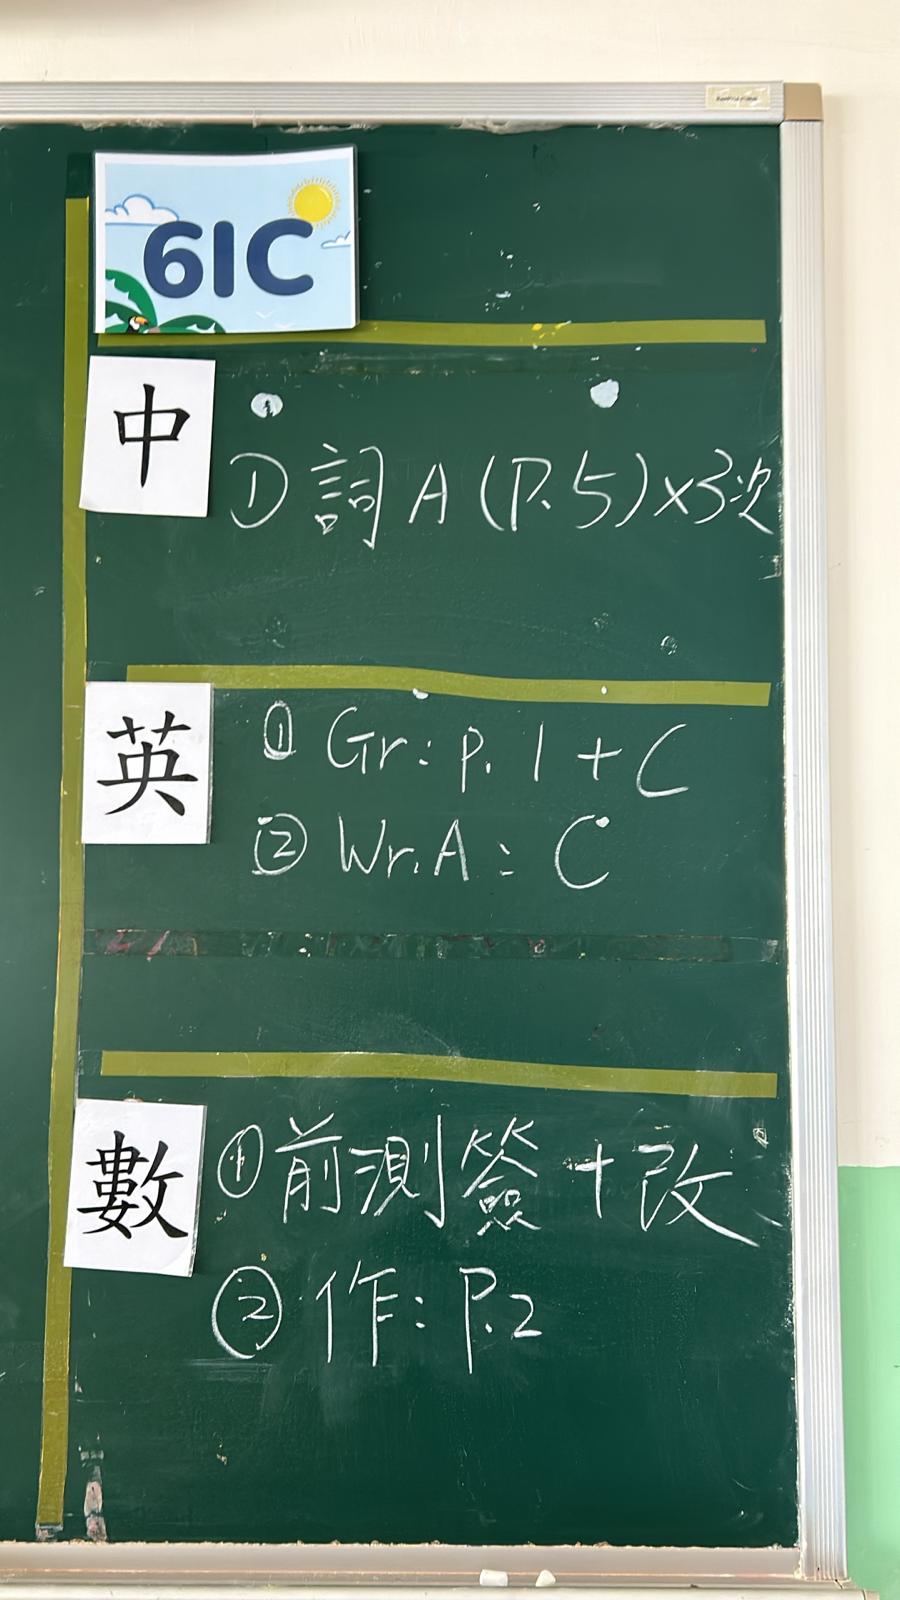 61C
中
① 詞 A (P.5)×3次
英
① Gr: p. 1 + C
② Wr.A: C
數
① 前測簽+改
② 作: P.2